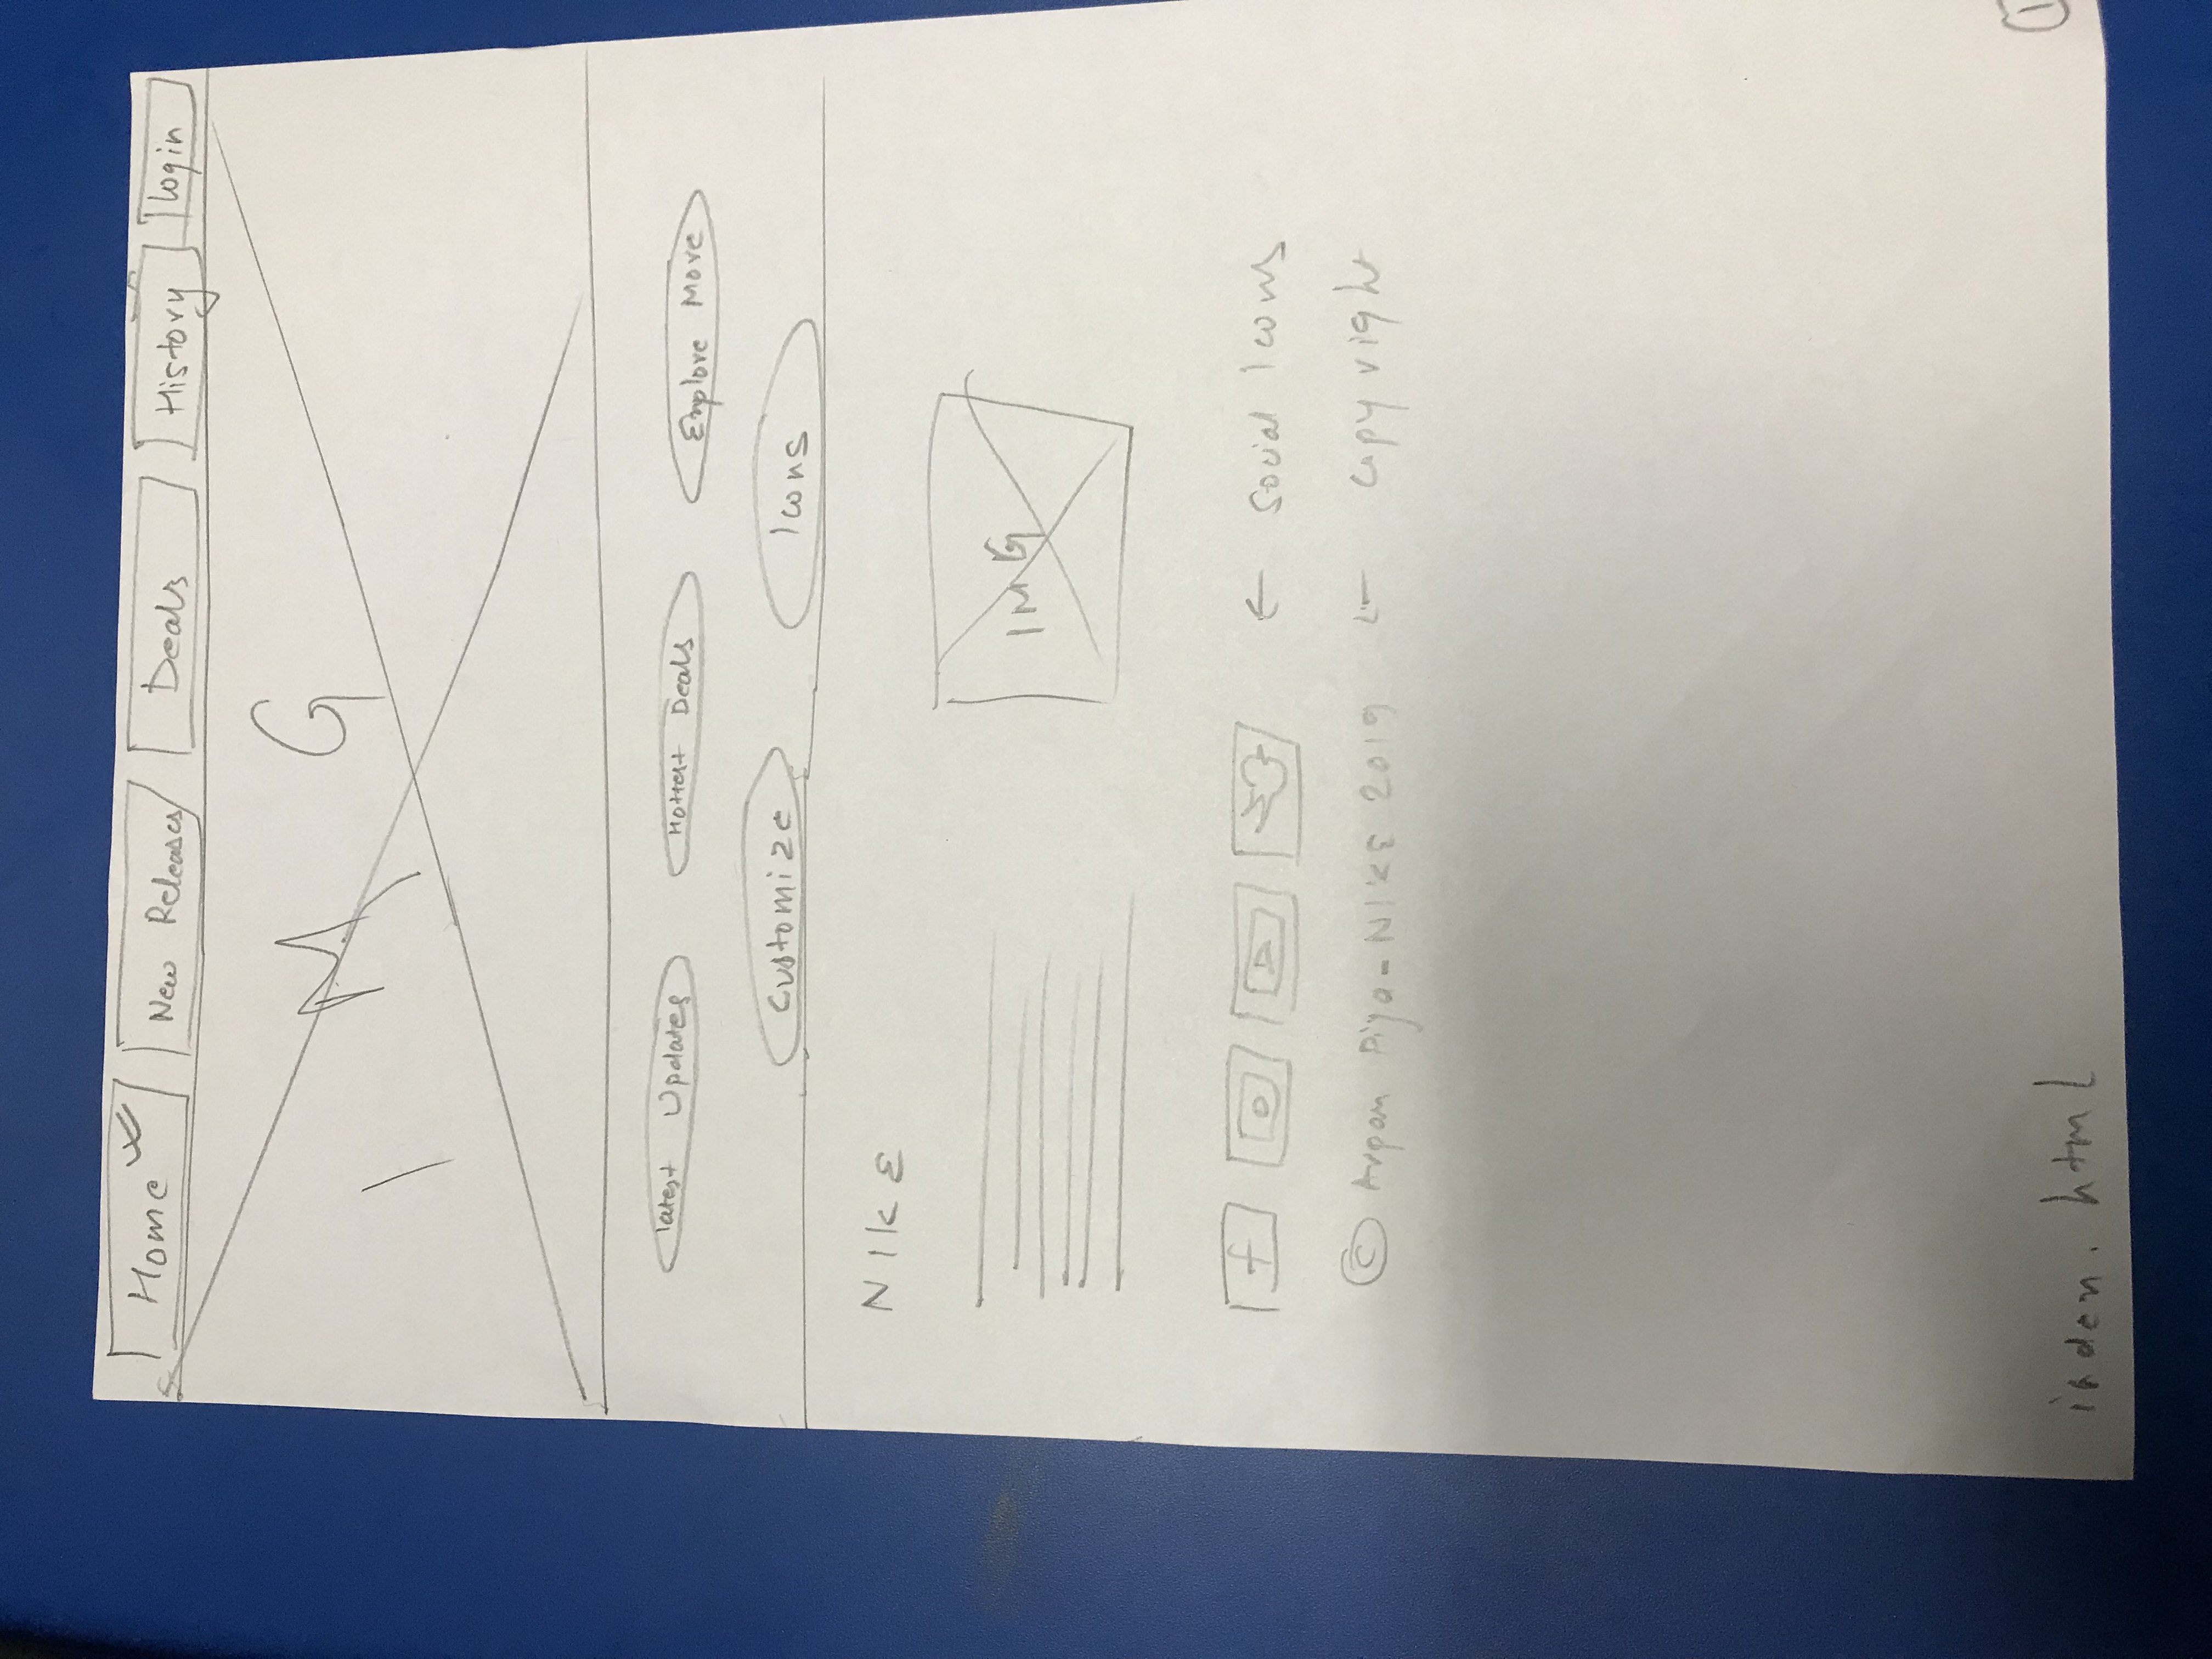 Home New Releases Deals History Login
IMG
latest Updates Hottest Deals Explore More
Customize Icons
NIKE
IMG
f ← Social Icons
© Arpan - NIKE 2019 ← Copyright
index.html
1